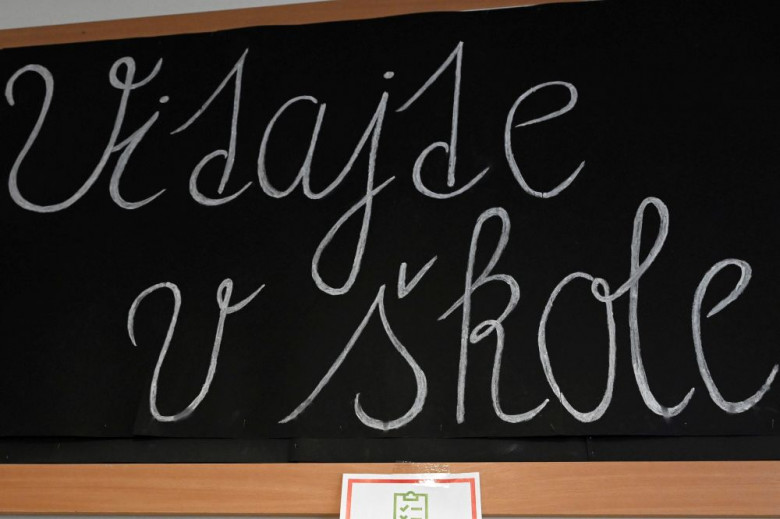 Vitajte
v škole